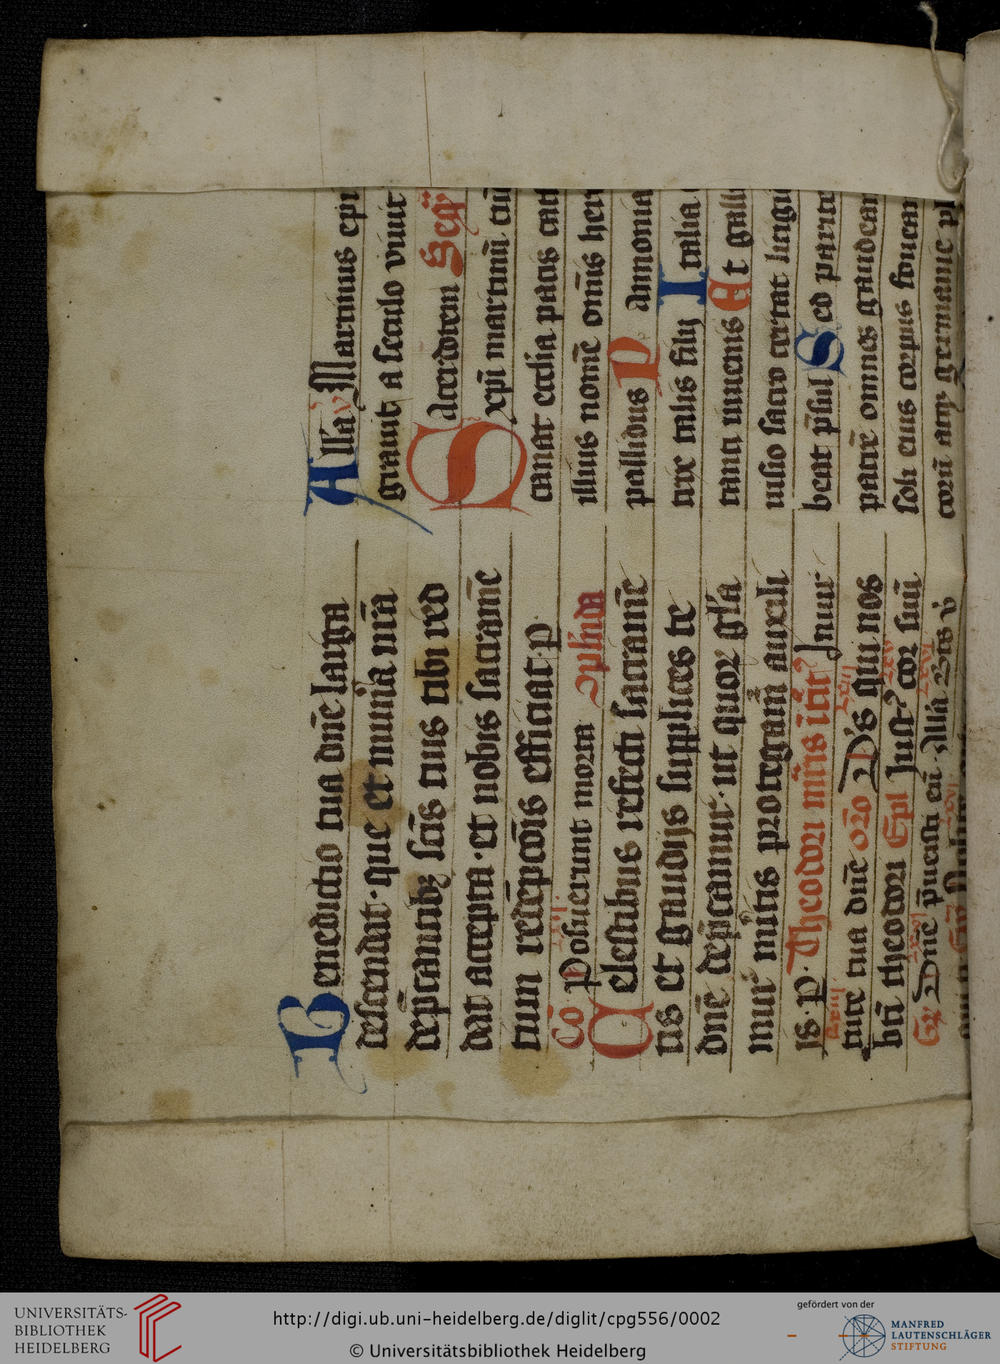 Benedictio tua dn̄e larga
descendat · que et mun̄a nr̄a
dep̄cantibꝫ sc̄is tuis tibi red
dat accepta · et nobis sacram̄e
tum redēpcōis efficiat · p ·
Cō Posuerunt morta Ꝯplēnda
Celestibus refecti sacram̄e
tis et gaudijs supplices te
dn̄e dep̄camur · ut quoꝝ gl̄a
mur mūtis protegam̄ auxili
is · P · Theodori mr̄is
ture tua dn̄e or̄o D's qui nos
bt̄i theodori Ep̄l Just9 cor suū
Dn̄e p̄uenisti eū · Alla
Alla V Martinus epi
grauit a seculo viuit
Sacerdotem Seq̄
xp̄i martinū cū
canat eccl̄ia pacis cat
illius nomē om̄is her
pallidus Pannonia
tixe talis filij Italia
tanti iuuenis Et galli
uisio sacro certat litigi
beat p̄sul Sed parite
patrē omnes gaudean
soli eius corpus foucan
torū atqꝫ germanie pl
UNIVERSITÄTS-
BIBLIOTHEK
HEIDELBERG
http://digi.ub.uni-heidelberg.de/diglit/cpg556/0002
© Universitätsbibliothek Heidelberg
gefördert von der
MANFRED
LAUTENSCHLÄGER
STIFTUNG